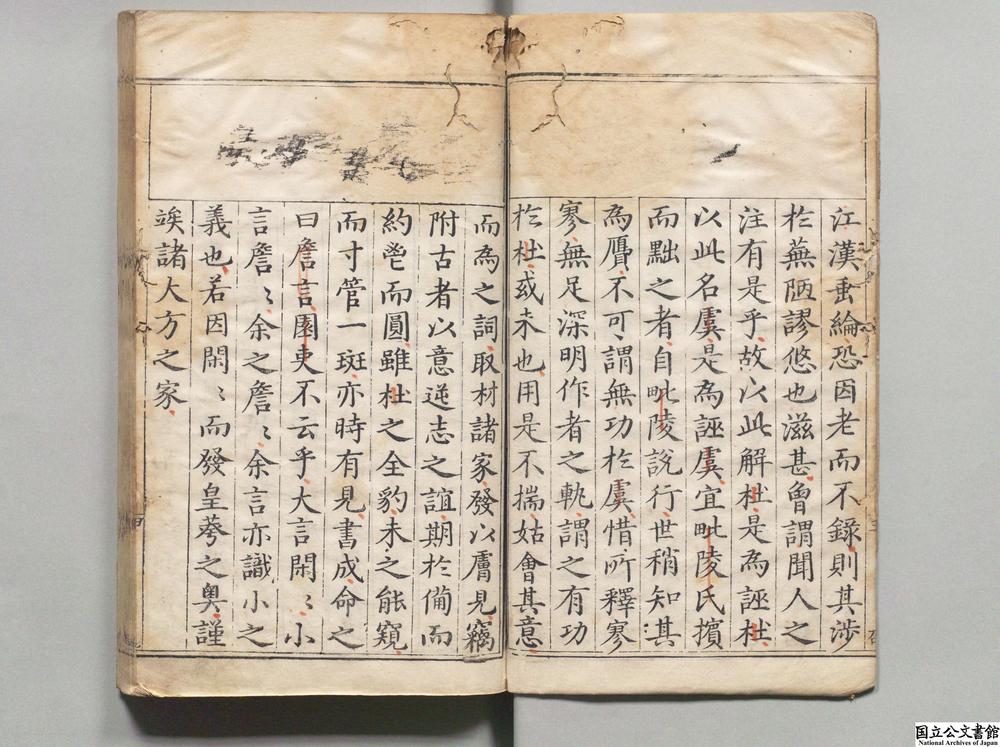 江漢垂綸恐因老而不錄則其涉
於蕪陋謬悠也滋甚曾謂聞人之
注有是乎故以此解杜是為誣杜
以此名虞是為誣虞宜毗陵氏擯
而黜之者自毗陵說行世稍知其
為贗不可謂無功於虞惜所釋寥
寥無足深明作者之軌謂之有功
於杜或未也用是不揣姑會其意
而為之詞取材諸家發以膚見竊
附古者以意逆志之誼期於備而
約鬯而圓雖杜之全豹未之能窺
而寸管一斑亦時有見書成命之
曰詹言園吏不云乎大言閑〻小
言詹〻余之詹〻余言亦識小之
義也若因閑〻而發皇荂之奧謹
竢諸大方之家
国立公文書館
National Archives of Japan